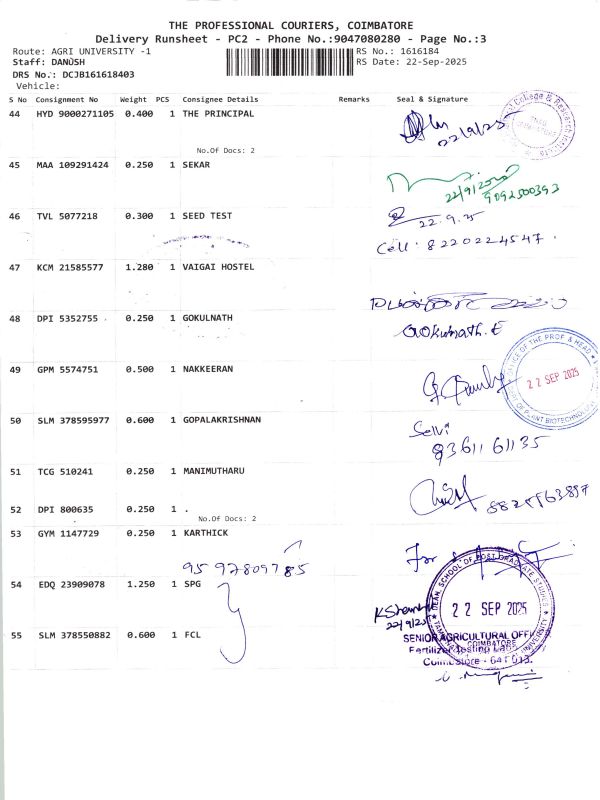 THE PROFESSIONAL COURIERS, COIMBATORE
Delivery Runsheet - PC2 - Phone No.:9047080280 - Page No.:3
Route: AGRI UNIVERSITY -1 RS No.: 1616184
Staff: DANUSH RS Date: 22-Sep-2025
DRS No.: DCJB161618403
Vehicle:
S No Consignment No Weight PCS Consignee Details Remarks Seal & Signature
44 HYD 9000271105 0.400 1 THE PRINCIPAL
22/9/25
No.Of Docs: 2
45 MAA 109291424 0.250 1 SEKAR
22/9/2025
9092500393
46 TVL 5077218 0.300 1 SEED TEST
22.9.25
Cell: 8220224547.
47 KCM 21585577 1.280 1 VAIGAI HOSTEL
48 DPI 5352755 0.250 1 GOKULNATH
Gokulnath.E
OFFICE OF THE PROF & HEAD
22 SEP 2025
OF PLANT BIOTECHNOLOGY
49 GPM 5574751 0.500 1 NAKKEERAN
50 SLM 378595977 0.600 1 GOPALAKRISHNAN
Selvi
9361161135
51 TCG 510241 0.250 1 MANIMUTHARU
52 DPI 800635 0.250 1 .
No.Of Docs: 2
53 GYM 1147729 0.250 1 KARTHICK
For
9597809785
54 EDQ 23909078 1.250 1 SPG
DEAN, SCHOOL OF POST GRADUATE STUDIES
22 SEP 2025
22/9/25
55 SLM 378550882 0.600 1 FCL
SENIOR AGRICULTURAL OFFI
COIMBATORE
Fertilizer Testing Lab
Coimbatore - 641 013.